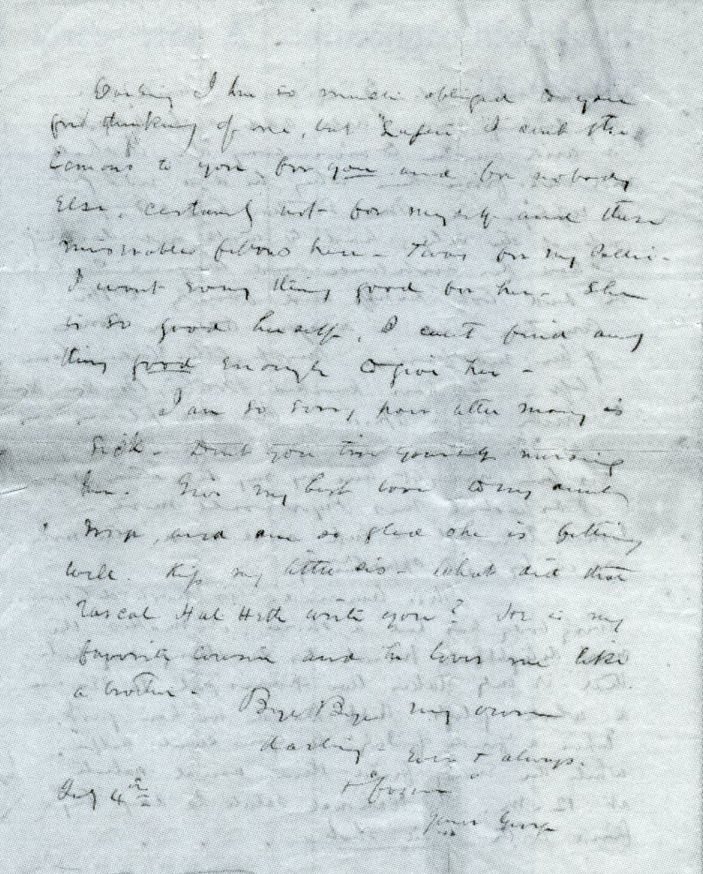 Darling I am so much obliged to you
for thinking of me, but I sent the
Lemons to you for you and for nobody
Else, certainly not for myself and these
miserable fellows here - Twas for my Sallie -
I want Every thing good for her - She
is so good herself, I can't find any
thing good Enough to give her -
I am so sorry poor little mary is
Sick - Don't you tire yourself nursing
her. Give my best love to my aunty
and am so glad she is getting
well. Kiss my little sis - What did that
rascal Hal Heth write you? He is my
favorite Cousin and he loves me like
a brother - Bye Bye my own
darling Ever & always.
&
4th
Your George